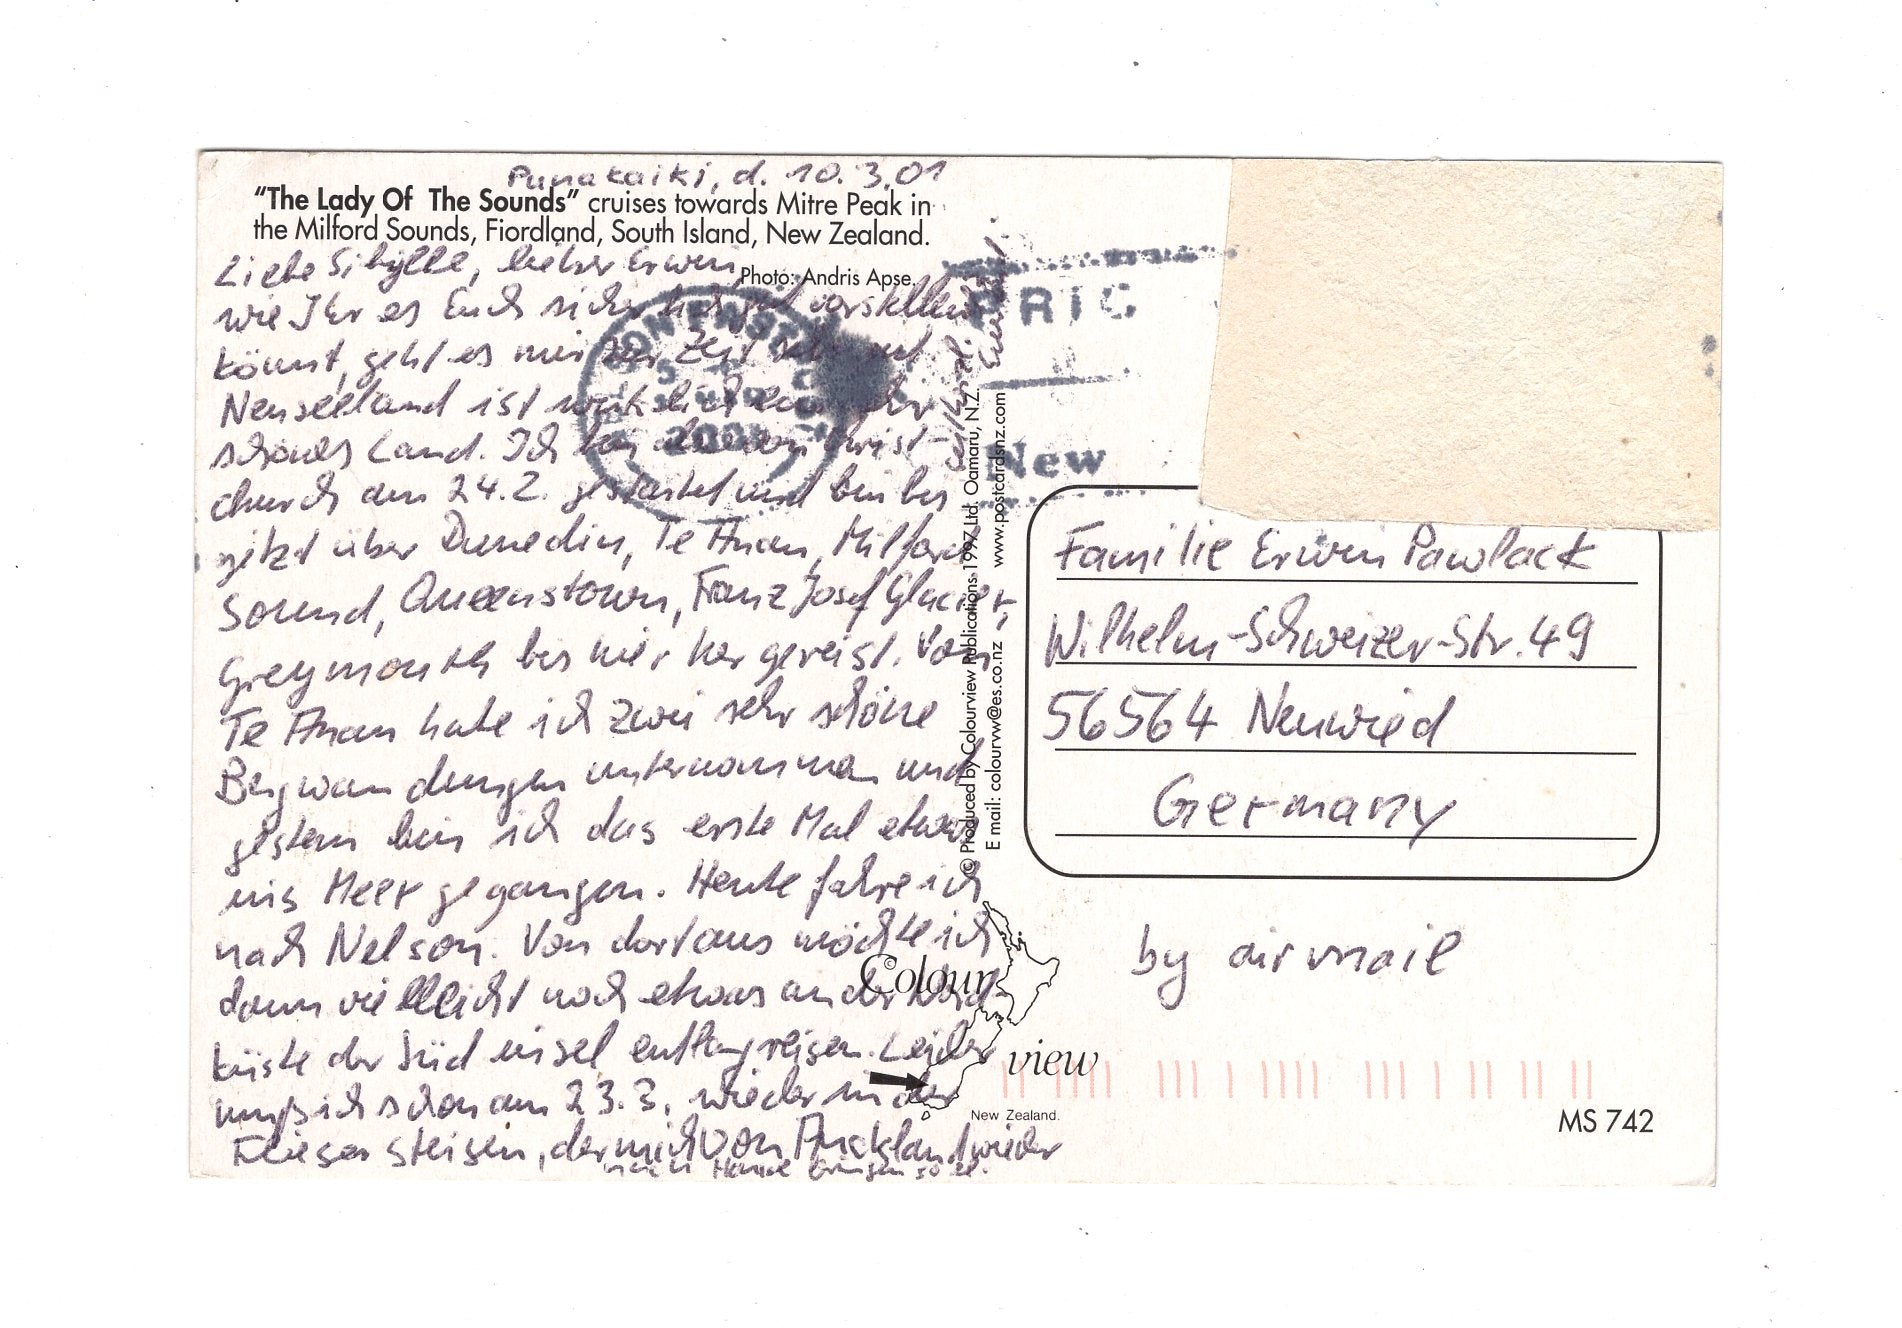 Punakaiki, d. 10.3.01
"The Lady Of The Sounds" cruises towards Mitre Peak in
the Milford Sounds, Fiordland, South Island, New Zealand.
Photo: Andris Apse.
Liebe Sibylle, lieber Erwin,
wie Ihr es Euch sicher vorstellen
könnt, geht es mir zur Zeit sehr gut
Neuseeland ist wirklich ein sehr
schönes Land. Ich bin Christ-
church am 24.2. gestartet und bin bis
jetzt über Dunedin, Te Anau, Milford
Sound, Queenstown, Franz Josef Glacier,
Greymouth bis hier her gereist. Von
Te Anau habe ich zwei sehr schöne
Bergwanderungen unternommen und
gestern bin ich das erste Mal etwas
ins Meer gegangen. Heute fahre ich
nach Nelson. Von dort aus möchte ich
dann vielleicht noch etwas an der Nord-
küste der Südinsel entlang reisen. Leider
muß ich schon am 23.3. wieder in den
Flieger steigen, der mich von Auckland wieder
nach Hause bringen soll.
© Produced by Colourview Publications 1997 Ltd. Oamaru, N.Z.
E mail: colourvw@es.co.nz www.postcardsnz.com
New
Familie Erwin Pawlack
Wilhelm-Schweizer-Str. 49
56564 Neuwied
Germany
by airmail
© Colour
view
New Zealand.
MS 742